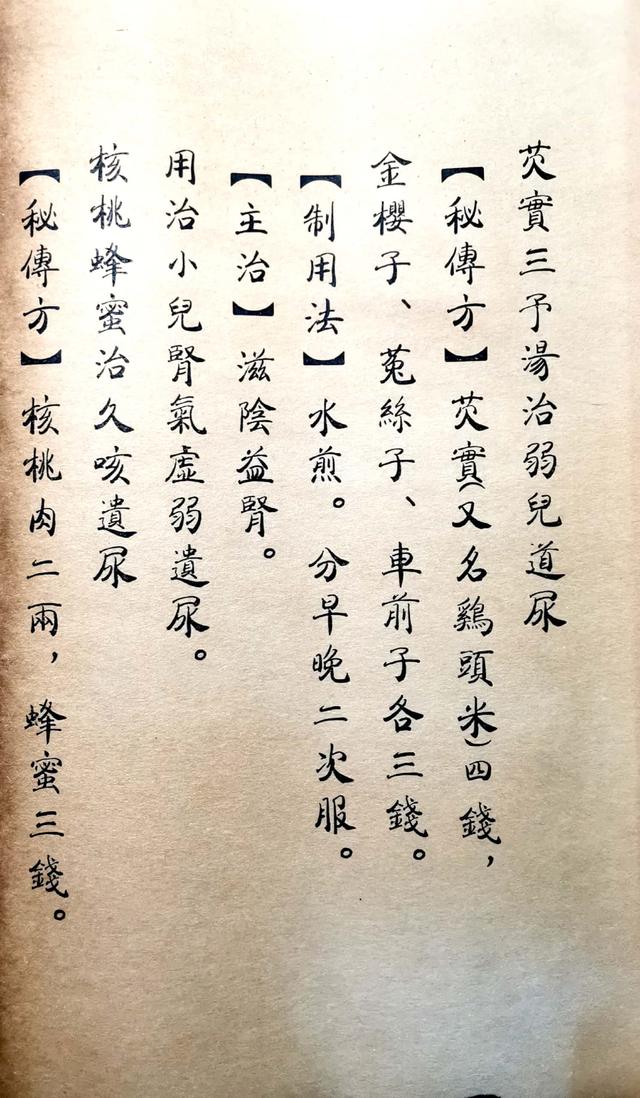 芡實三予湯治弱兒道尿
【秘傳方】芡實(又名鷄頭米)四錢，
金櫻子、菟絲子、車前子各三錢。
【制用法】水煎。分早晚二次服。
【主治】滋陰益腎。
用治小兒腎氣虛弱遺尿。
核桃蜂蜜治久咳遺尿
【秘傳方】核桃肉二兩，蜂蜜三錢。